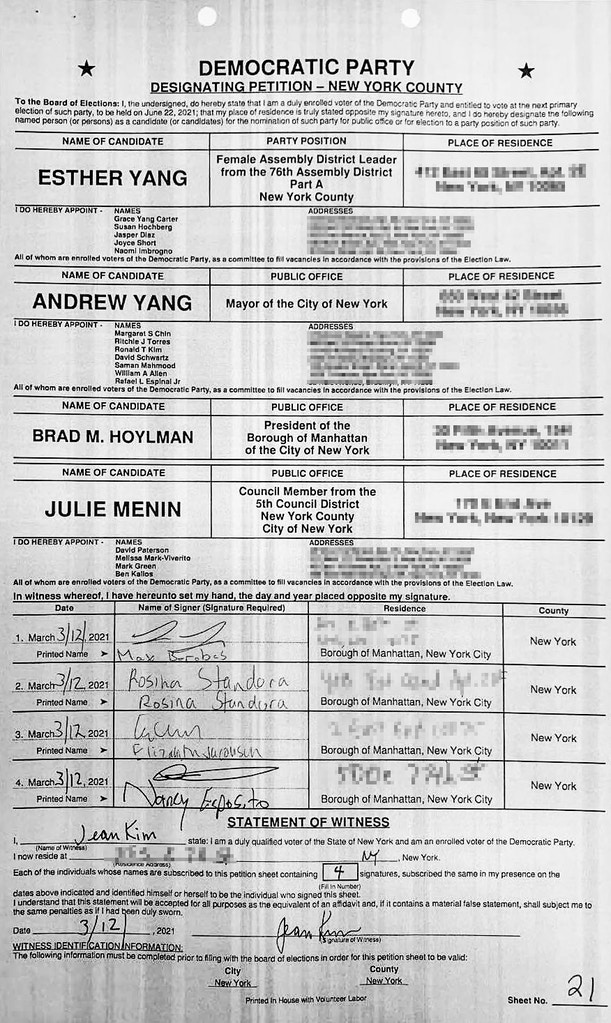 ★ DEMOCRATIC PARTY ★
DESIGNATING PETITION – NEW YORK COUNTY
To the Board of Elections: I, the undersigned, do hereby state that I am a duly enrolled voter of the Democratic Party and entitled to vote at the next primary
election of such party, to be held on June 22, 2021; that my place of residence is truly stated opposite my signature hereto, and I do hereby designate the following
named person (or persons) as a candidate (or candidates) for the nomination of such party for public office or for election to a party position of such party.
NAME OF CANDIDATE PARTY POSITION PLACE OF RESIDENCE
ESTHER YANG
Female Assembly District Leader
from the 76th Assembly District
Part A
New York County
I DO HEREBY APPOINT - NAMES ADDRESSES
Grace Yang Carter
Susan Hochberg
Jasper Diaz
Joyce Short
Naomi Imbrogno
All of whom are enrolled voters of the Democratic Party, as a committee to fill vacancies in accordance with the provisions of the Election Law.
NAME OF CANDIDATE PUBLIC OFFICE PLACE OF RESIDENCE
ANDREW YANG Mayor of the City of New York
I DO HEREBY APPOINT - NAMES ADDRESSES
Margaret S Chin
Ritchie J Torres
Ronald T Kim
David Schwartz
Saman Mahmood
William A Allen
Rafael L Espinal Jr
All of whom are enrolled voters of the Democratic Party, as a committee to fill vacancies in accordance with the provisions of the Election Law.
NAME OF CANDIDATE PUBLIC OFFICE PLACE OF RESIDENCE
BRAD M. HOYLMAN
President of the
Borough of Manhattan
of the City of New York
NAME OF CANDIDATE PUBLIC OFFICE PLACE OF RESIDENCE
JULIE MENIN
Council Member from the
5th Council District
New York County
City of New York
I DO HEREBY APPOINT - NAMES ADDRESSES
David Paterson
Melissa Mark-Viverito
Mark Green
Ben Kallos
All of whom are enrolled voters of the Democratic Party, as a committee to fill vacancies in accordance with the provisions of the Election Law.
In witness whereof, I have hereunto set my hand, the day and year placed opposite my signature.
Date Name of Signer (Signature Required) Residence County
1. March 3/12, 2021 New York
Printed Name ➤ Max Borough of Manhattan, New York City
2. March 3/12, 2021 Rosina Standora New York
Printed Name ➤ Rosina Standora Borough of Manhattan, New York City
3. March 3/12, 2021 New York
Printed Name ➤ Elizabeth Borough of Manhattan, New York City
4. March 3/12, 2021 New York
Printed Name ➤ Nancy Esposito Borough of Manhattan, New York City
STATEMENT OF WITNESS
I, Jean Kim state: I am a duly qualified voter of the State of New York and am an enrolled voter of the Democratic Party.
(Name of Witness)
I now reside at NY, New York.
(Residence Address)
Each of the individuals whose names are subscribed to this petition sheet containing 4 signatures, subscribed the same in my presence on the
(Fill in Number)
dates above indicated and identified himself or herself to be the individual who signed this sheet.
I understand that this statement will be accepted for all purposes as the equivalent of an affidavit and, if it contains a material false statement, shall subject me to
the same penalties as if I had been duly sworn.
Date 3/12/, 2021 Jean Kim
(Signature of Witness)
WITNESS IDENTIFICATION INFORMATION:
The following information must be completed prior to filing with the board of elections in order for this petition sheet to be valid:
City County
New York New York
Printed In House with Volunteer Labor
Sheet No. 21